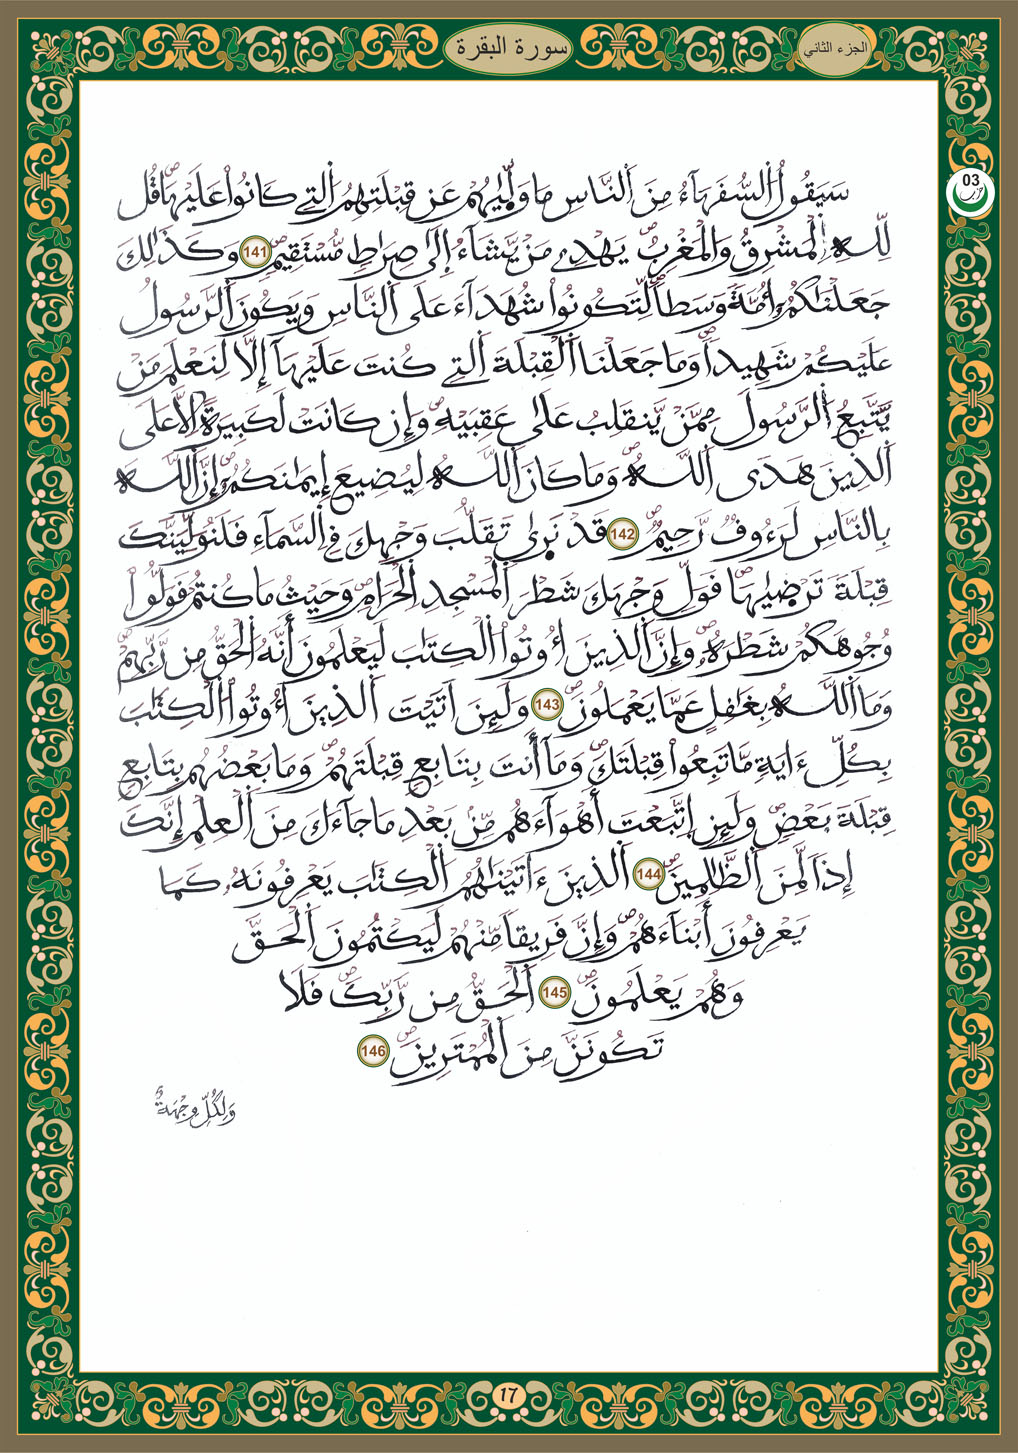 الجزء الثاني
سورة البقرة
03
حزب
سَيَقُولُ اُ۬لسُّفَهَآءُ مِنَ اَ۬لنَّاسِ مَا وَلّ۪يٰهُمْ عَن قِبْلَتِهِمُ اُ۬لتِے كَانُواْ عَلَيْهَاۖ قُل
لِّلهِ اِ۬لْمَشْرِقُ وَالْمَغْرِبُۖ يَهْدِے مَنْ يَّشَآءُ اِ۪لَىٰ صِرَٰطٖ مُّسْتَقِيمٖۖ 141 وَكَذَٰلِكَ
جَعَلْنَٰكُمُۥٓ أُمَّةٗ وَسَطاٗ لِّتَكُونُواْ شُهَدَآءَ عَلَى اَ۬لنَّاسِ وَيَكُونَ اَ۬لرَّسُولُ
عَلَيْكُمْ شَهِيداٗۖ وَمَا جَعَلْنَا اَ۬لْقِبْلَةَ اَ۬لتِے كُنتَ عَلَيْهَآ إِلَّا لِنَعْلَمَ مَنْ
يَّتَّبِعُ اُ۬لرَّسُولَ مِمَّنْ يَّنقَلِبُ عَلَىٰ عَقِبَيْهِۖ وَإِن كَانَتْ لَكَبِيرَةً اِلَّا عَلَى
اَ۬لذِينَ هَدَى اَ۬للَّهُۖ وَمَا كَانَ اَ۬للَّهُ لِيُضِيعَ إِيمَٰنَكُمُۥٓۖ إِنَّ اَ۬للَّهَ
بِالنَّاسِ لَرَءُوفٞ رَّحِيمٞۖ 142 قَدْ نَر۪ىٰ تَقَلُّبَ وَجْهِكَ فِے اِ۬لسَّمَآءِ فَلَنُوَلِّيَنَّكَ
قِبْلَةٗ تَرْض۪يٰهَاۖ فَوَلِّ وَجْهَكَ شَطْرَ اَ۬لْمَسْجِدِ اِ۬لْحَرَامِۖ وَحَيْثُ مَا كُنتُمْ فَوَلُّواْ
وُجُوهَكُمْ شَطْرَهُۥۖ وَإِنَّ اَ۬لذِينَ أُوتُواْ اُ۬لْكِتَٰبَ لَيَعْلَمُونَ أَنَّهُ اُ۬لْحَقُّ مِن رَّبِّهِمْۖ
وَمَا اَ۬للَّهُ بِغَٰفِلٍ عَمَّا يَعْمَلُونَۖ 143 وَلَئِنَ اَتَيْتَ اَ۬لذِينَ أُوتُواْ اُ۬لْكِتَٰبَ
بِكُلِّ ءَايَةٖ مَّا تَبِعُواْ قِبْلَتَكَۖ وَمَآ أَنتَ بِتَابِعٖ قِبْلَتَهُمْۖ وَمَا بَعْضُهُم بِتَابِعٖ
قِبْلَةَ بَعْضٖۖ وَلَئِنِ اِ۪تَّبَعْتَ أَهْوَآءَهُم مِّنۢ بَعْدِ مَا جَآءَكَ مِنَ اَ۬لْعِلْمِ إِنَّكَ
إِذاٗ لَّمِنَ اَ۬لظَّٰلِمِينَۖ 144 اَ۬لذِينَ ءَاتَيْنَٰهُمُ اُ۬لْكِتَٰبَ يَعْرِفُونَهُۥ كَمَا
يَعْرِفُونَ أَبْنَآءَهُمْۖ وَإِنَّ فَرِيقاٗ مِّنْهُمْ لَيَكْتُمُونَ اَ۬لْحَقَّ
وَهُمْ يَعْلَمُونَۖ 145 اَ۬لْحَقُّ مِن رَّبِّكَۖ فَلَا
تَكُونَنَّ مِنَ اَ۬لْمُمْتَرِينَۖ 146
وَلِكُلّٖ وِجْهَةٌ
17